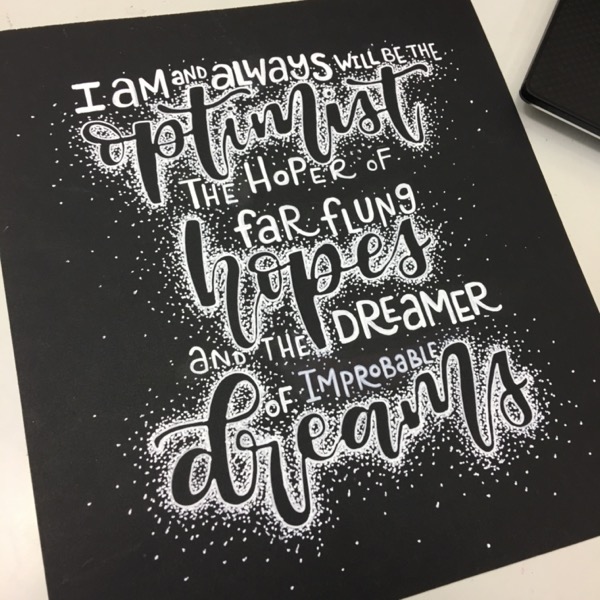 I am and always will be the
optimist
The Hoper of
far flung
hopes
and the Dreamer
of Improbable
dreams